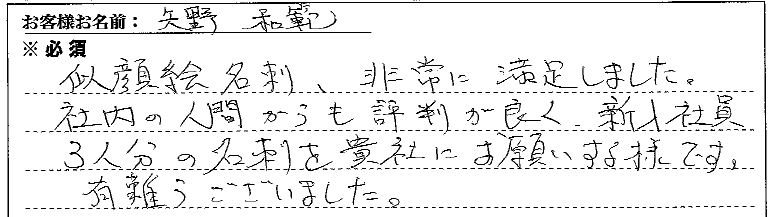 お客様お名前：矢野 和範
※必須
似顔絵名刺、非常に満足しました。
社内の人間からも評判が良く、新入社員
3人分の名刺を貴社にお願いする様です。
有難うございました。